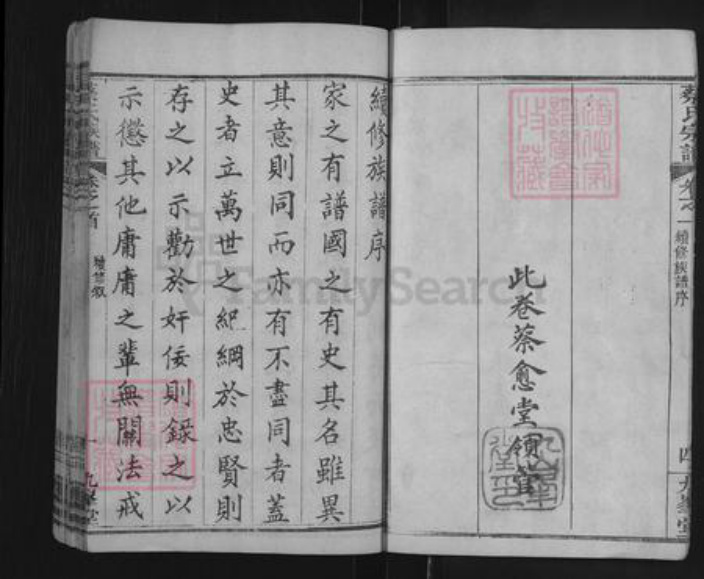 蔡氏宗譜
續修族譜序
四
此卷蔡愈堂領管
續修族譜序
家之有譜國之有史其名雖異
其意則同而亦有不盡同者蓋
史者立萬世之紀綱於忠賢則
存之以示勸於奸佞則錄之以
示懲其他庸庸之輩無關法戒
續修敘
一
FamilySearch